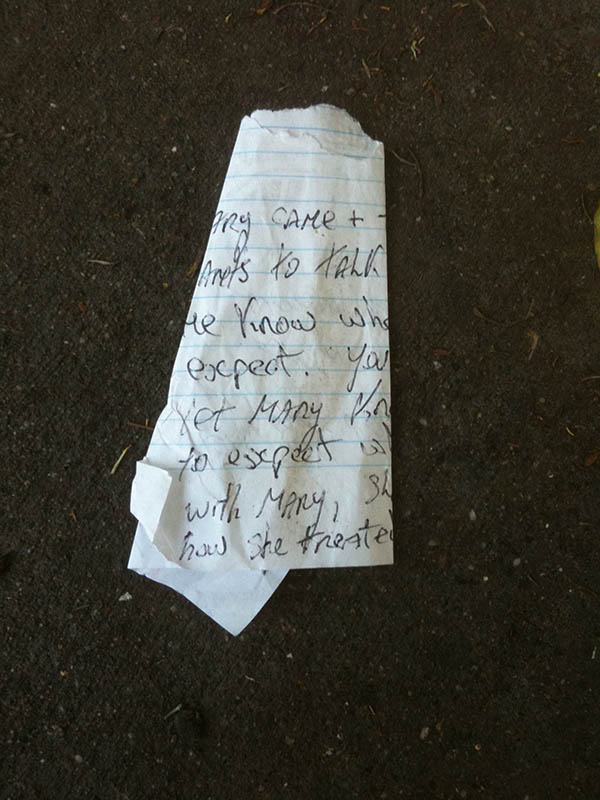 ARY CAME +
ANTS to TALK
Me Know wha
expect. You
Yet MARY Kn
to expect w
with MARY, Sh
how She treated